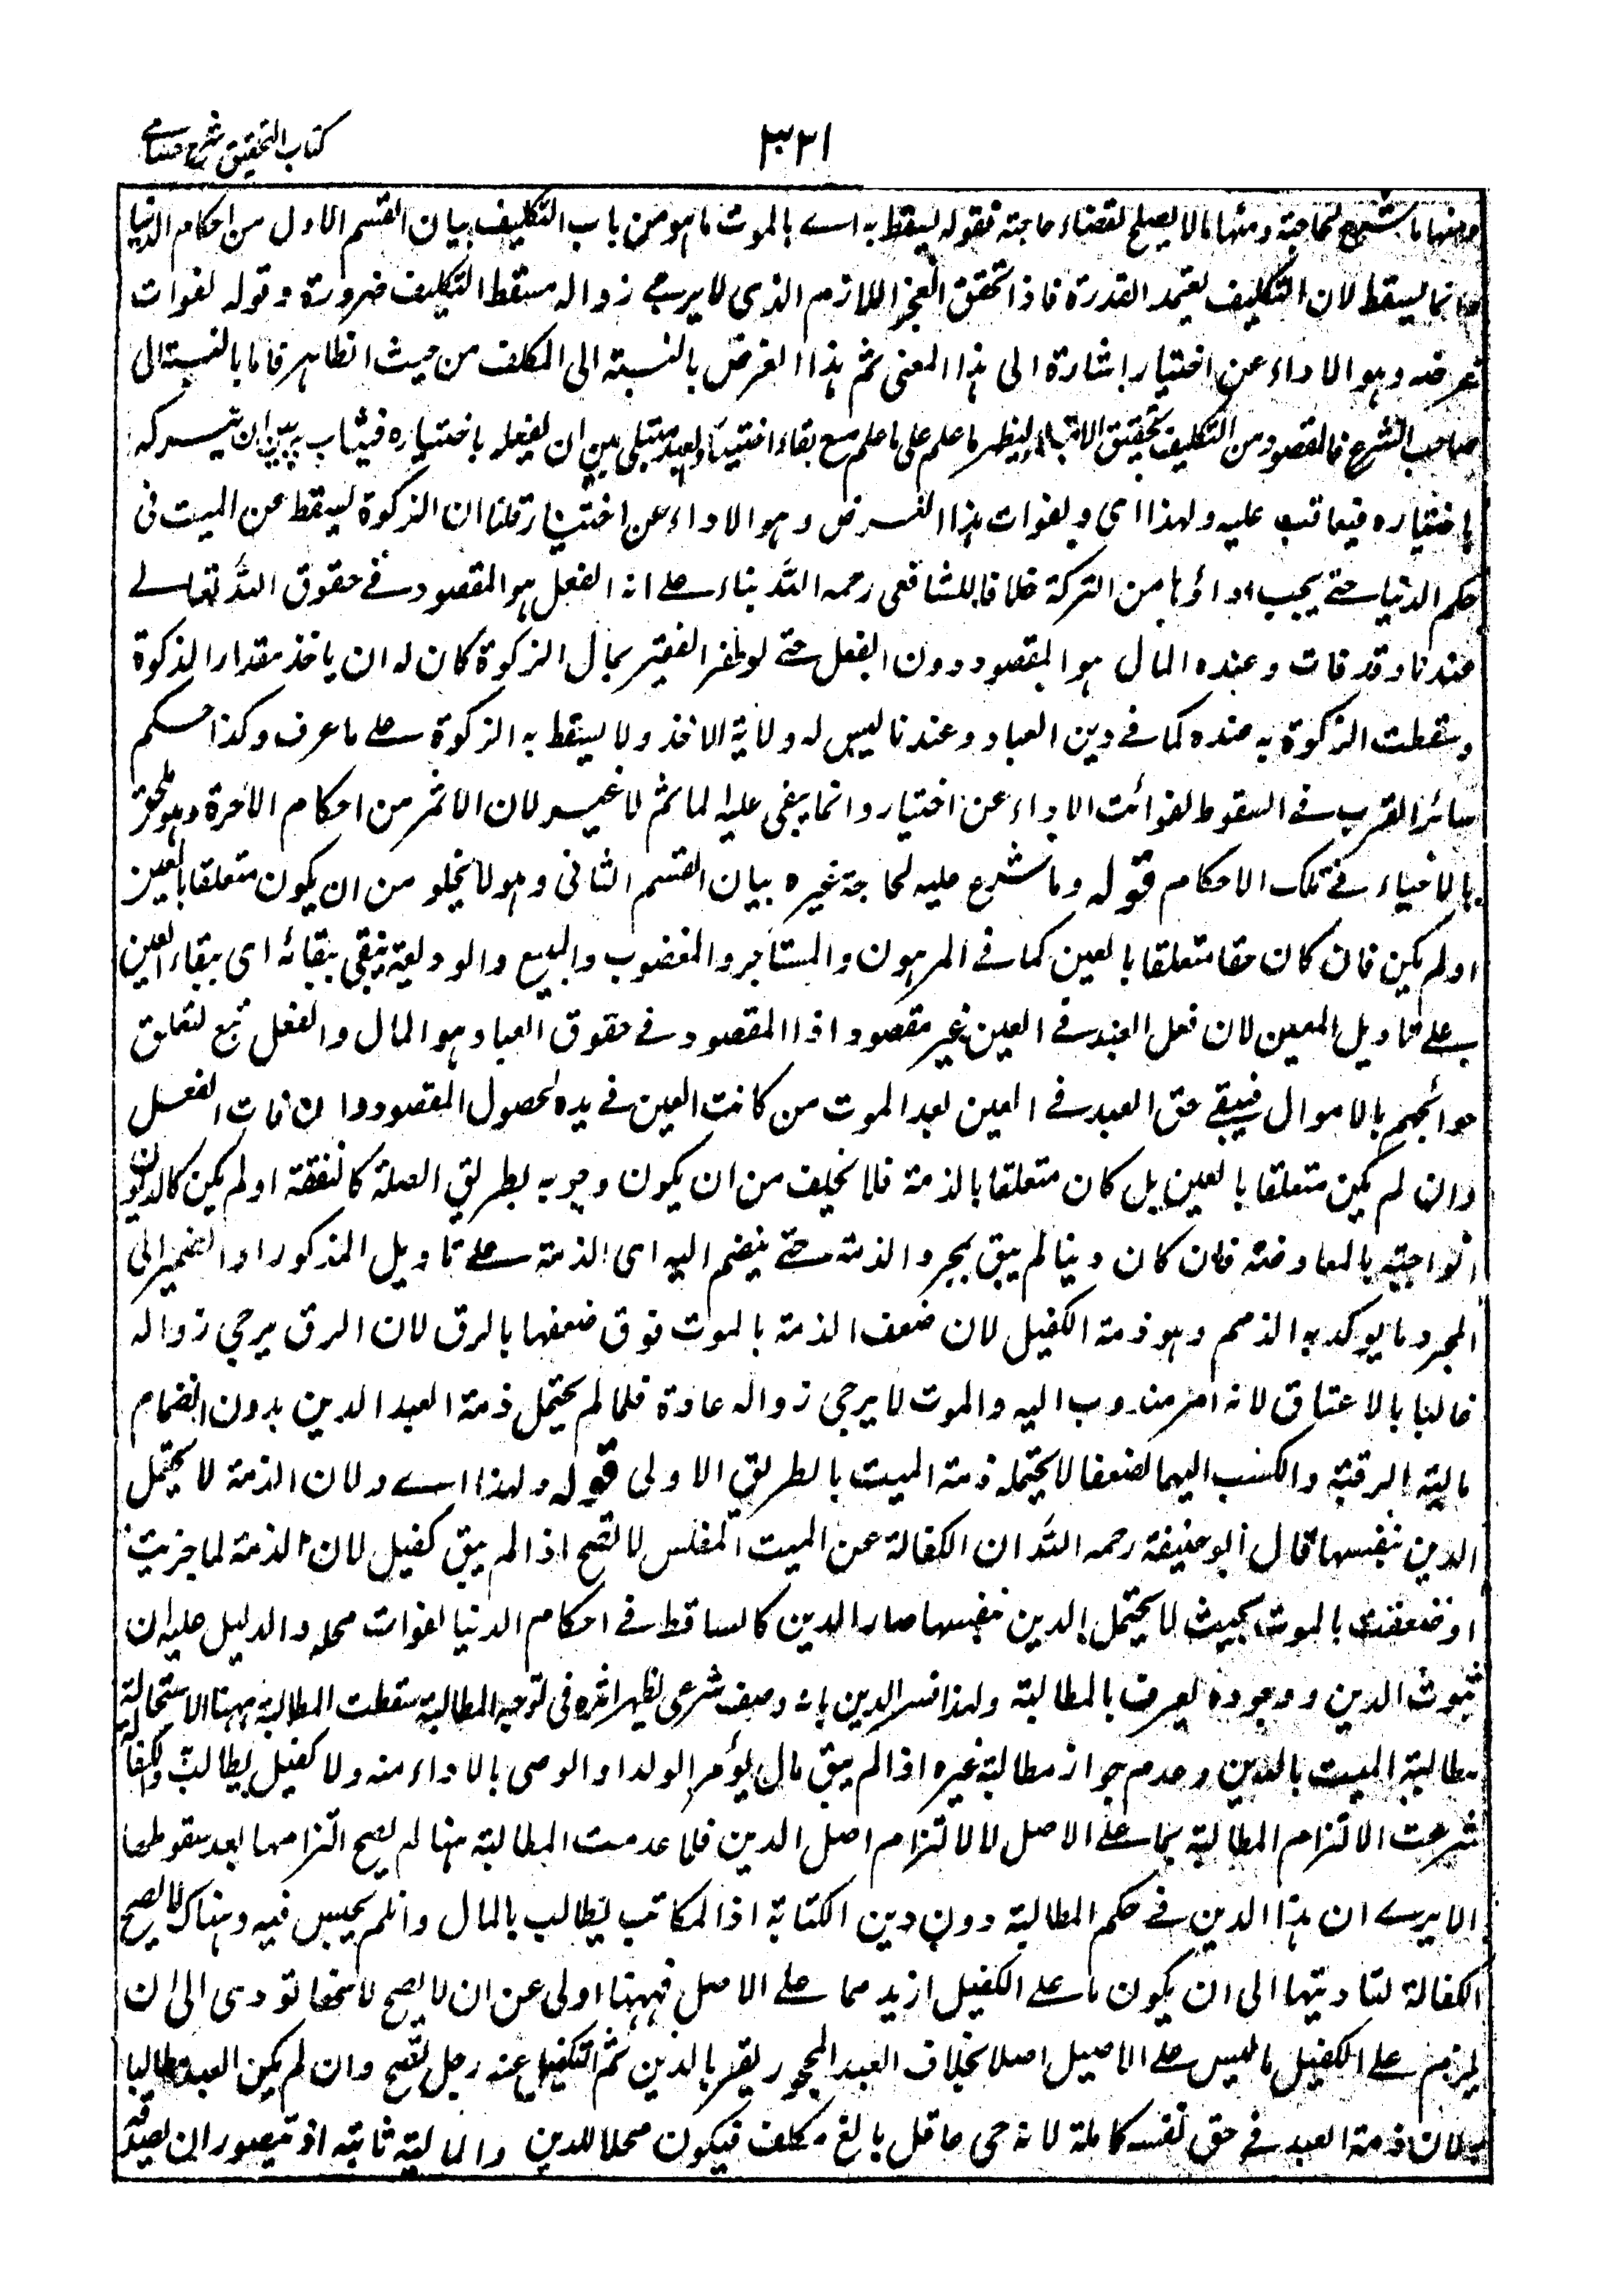 كتاب التحقيق شرح حسامے
٣٣١
ومنها ما شرع لحاجة ومنها ما لا يصلح لقضاء حاجته فقوله يسقط به اے بالموت ما هو من باب التكليف بيان القسم الاول من احكام الدنيا
وانما يسقط لان التكليف يعتمد القدرة فاذا تحقق العجز اللازم الذى لا يرجے زواله سقط التكليف ضرورة وقوله لفوات
غرضه وهو الاداء عن اختيار اشارة الى هذا المعنى ثم هذا الغرض بالنسبة الى المكلف من حيث الظاهر فاما بالنسبة الى
صاحب الشرع فالمقصود من التكليف تحقيق الابتلاء ليظهر ما علم على ما علم مع بقاء اختيار العبد مبتلى بين ان يفعله باختياره فيثاب به وبين ان يتركه
باختياره فيعاقب عليه ولهذا اى ولفوات هذا الغرض وهو الاداء عن اختيار قلنا ان الزكوة يسقط عن الميت فى
حكم الدنيا حتے يجب اداؤها من التركة خلافا للشافعى رحمه الله بناء علے ان الفعل هو المقصود فے حقوق الله تعالے
عندنا وقد فات وعنده المال هو المقصود دون الفعل حتے لو ظفر الفقير بمال الزكوة كان له ان ياخذ مقدار الزكوة
وسقطت الزكوة به عنده كما فے دين العباد وعندنا ليس له ولاية الاخذ ولا يسقط به الزكوة علے ما عرف وكذا حكم
سائر القرب فے السقوط لفوائت الاداء عن اختيار وانما يبقى عليه المأثم لا غير لان الاثم من احكام الاخرة وهو ملحق
بالاحياء فے تلك الاحكام قوله وما شرع عليه لحاجة غيره بيان القسم الثانى وهو لا يخلو من ان يكون متعلقا بالعين
او لم يكن فان كان حقا متعلقا بالعين كما فے المرهون والمستاجر والمغصوب والمبيع والوديعة يبقى ببقائه اى ببقاء العين
علے تاويل المعين لان فعل العبد فے العين غير مقصود اذ المقصود فے حقوق العباد هو المال والفعل تبع لتعلق
حوائجهم بالاموال فيبقے حق العبد فے العين بعد الموت من كانت العين فے يده لحصول المقصود وان فات الفعل
وان لم يكن متعلقا بالعين بل كان متعلقا بالذمة فلا يخلف من ان يكون وجوبه بطريق الصلة كالنفقة او لم يكن كالديون
الواجبة بالمعاوضة فان كان دينا لم يبق بمجرد الذمة حتے ينضم اليه اى الذمة علے تاويل المذكور او الضمير الى
المجرد ما يوكد به الذمم وهو ذمة الكفيل لان ضعف الذمة بالموت فوق ضعفها بالرق لان الرق يرجى زواله
غالبا بالاعتاق لانه امر مندوب اليه والموت لا يرجى زواله عادة فلما لم يحتمل ذمة العبد الدين بدون انضمام
مالية الرقبة والكسب اليها لضعفا لا يحتمله ذمة الميت بالطريق الاولى قوله ولهذا اے ولان الذمة لا يحتمل
الدين بنفسها قال ابو حنيفة رحمه الله ان الكفالة عن الميت المفلس لا تصح اذا لم يبق كفيل لان الذمة لما خربت
او ضعفت بالموت بحيث لا يحتمل الدين بنفسها صار الدين كالساقط فے احكام الدنيا لفوات محله والدليل عليه ان
ثبوت الدين ووجوده يعرف بالمطالبة ولهذا فسر الدين بانه وصف شرعى يظهر اثره فى توجه المطالبة سقطت المطالبة ههنا لاستحالة
مطالبة الميت بالدين وعدم جواز مطالبة غيره اذ لم يبق مال يؤمر الولد او الوصى بالاداء منه ولا كفيل يطالب والكفالة
شرعت لالتزام المطالبة بما علے الاصل لا لالتزام اصل الدين فلما عدمت المطالبة هنا لم يصح التزامها بعد سقوطها
الا يرے ان هذا الدين فے حكم المطالبة دون دين الكتابة اذ المكاتب يطالب بالمال وانلم يحبس فيه وهناك لا يصح
الكفالة لتاديتها الى ان يكون ما على الكفيل ازيد مما على الاصل فههنا اولى عن ان لا يصح لانها تؤدى الى ان
يلزم علے الكفيل ما ليس علے الاصيل اصلا بخلاف العبد المحجور يقر بالدين ثم التكفيل عنه رجل تصح وان لم يكن العبد مطالبا
به لان ذمة العبد فے حق نفسه كاملة لانه حى عاقل بالغ مكلف فيكون محلا للدين والمالية ثابتة اذ يتصور ان يصدقه